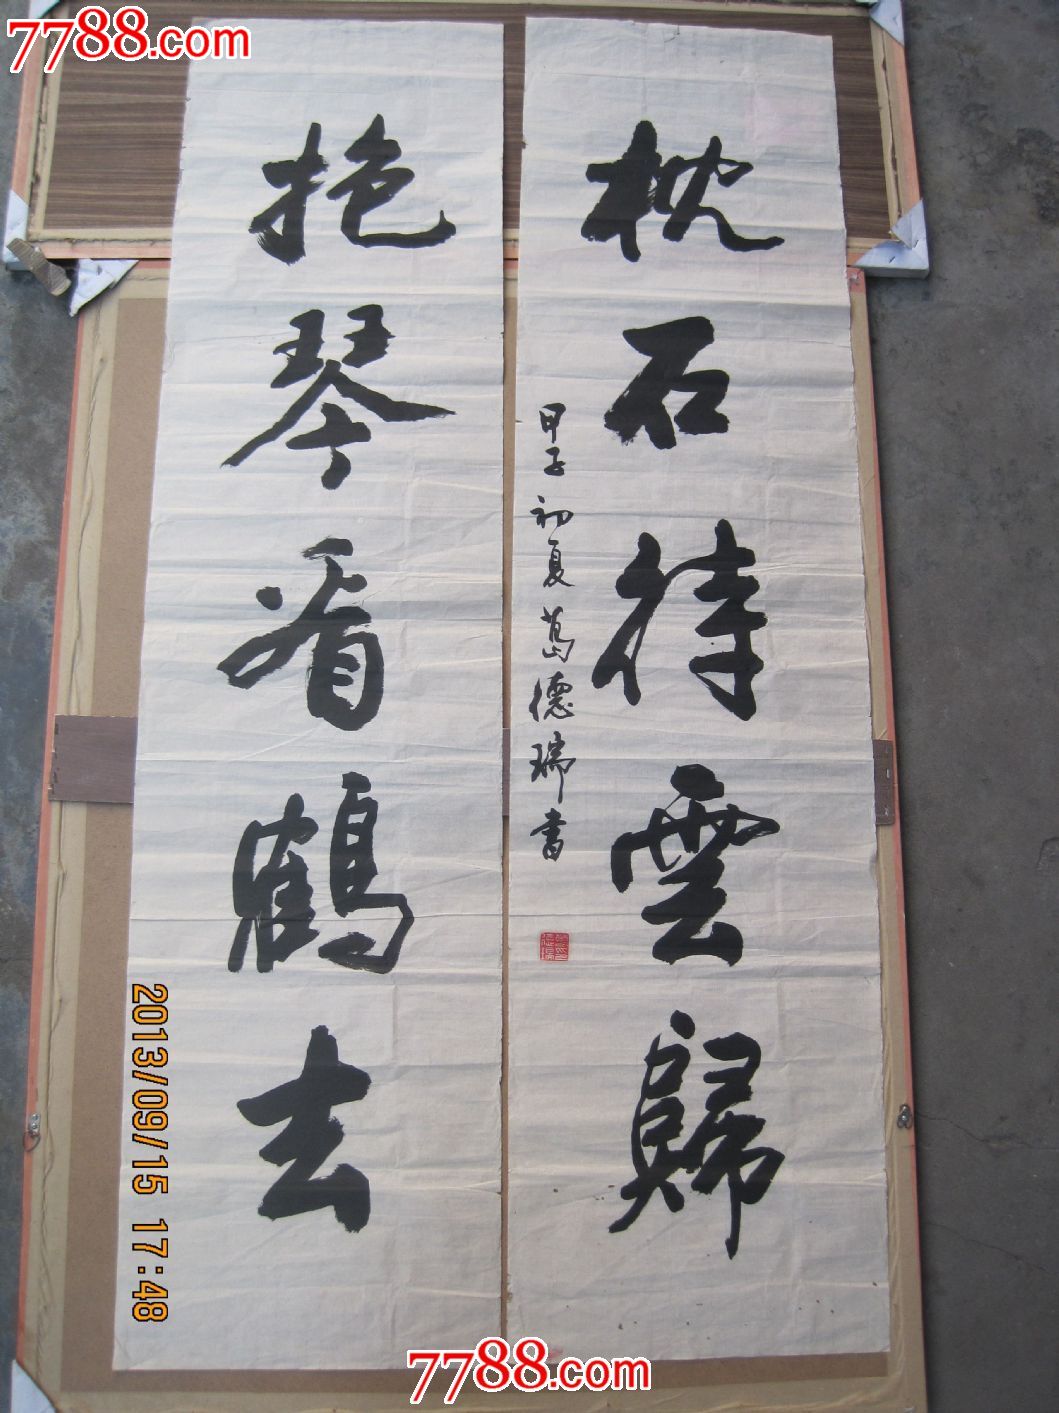 7788.com
抱琴看鶴去
枕石待雲歸
甲子初夏葛德瑞書
2013/09/15 17:48
7788.com